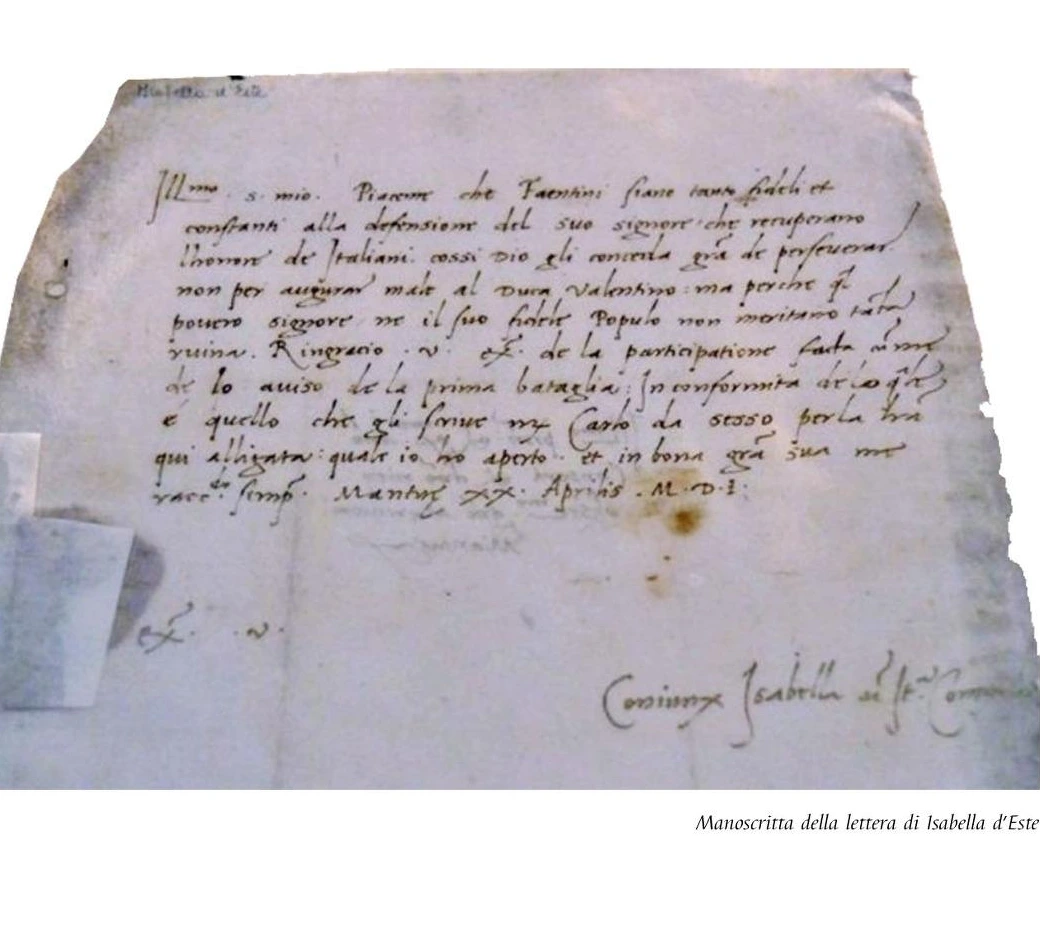 Isabella d'Este
Ill.mo s. mio. Piaceme che Faentini siano tanto fideli et
constanti alla defensione del suo signore che recuperano
lhonore de Italiani. cossi Dio gli conceda grã de perseverar.
non per augurar male al Duca Valentino: ma perche ql
povero signore ne il suo fidele Populo non meritano tãta
ruina. Ringracio .v. ex. de la participatione facta cũ me
de lo aviso de la prima bataglia: In conformita de la qle
è quello che gli scrive mr Carlo da sesso per la lrã
qui alligata: quale io ho aperto. et in bona grã sua me
racc. semp. Mantuę XX. Aprilis . M.D.I.
ex. .v.
Coniunx Isabella
Manoscritta della lettera di Isabella d'Este